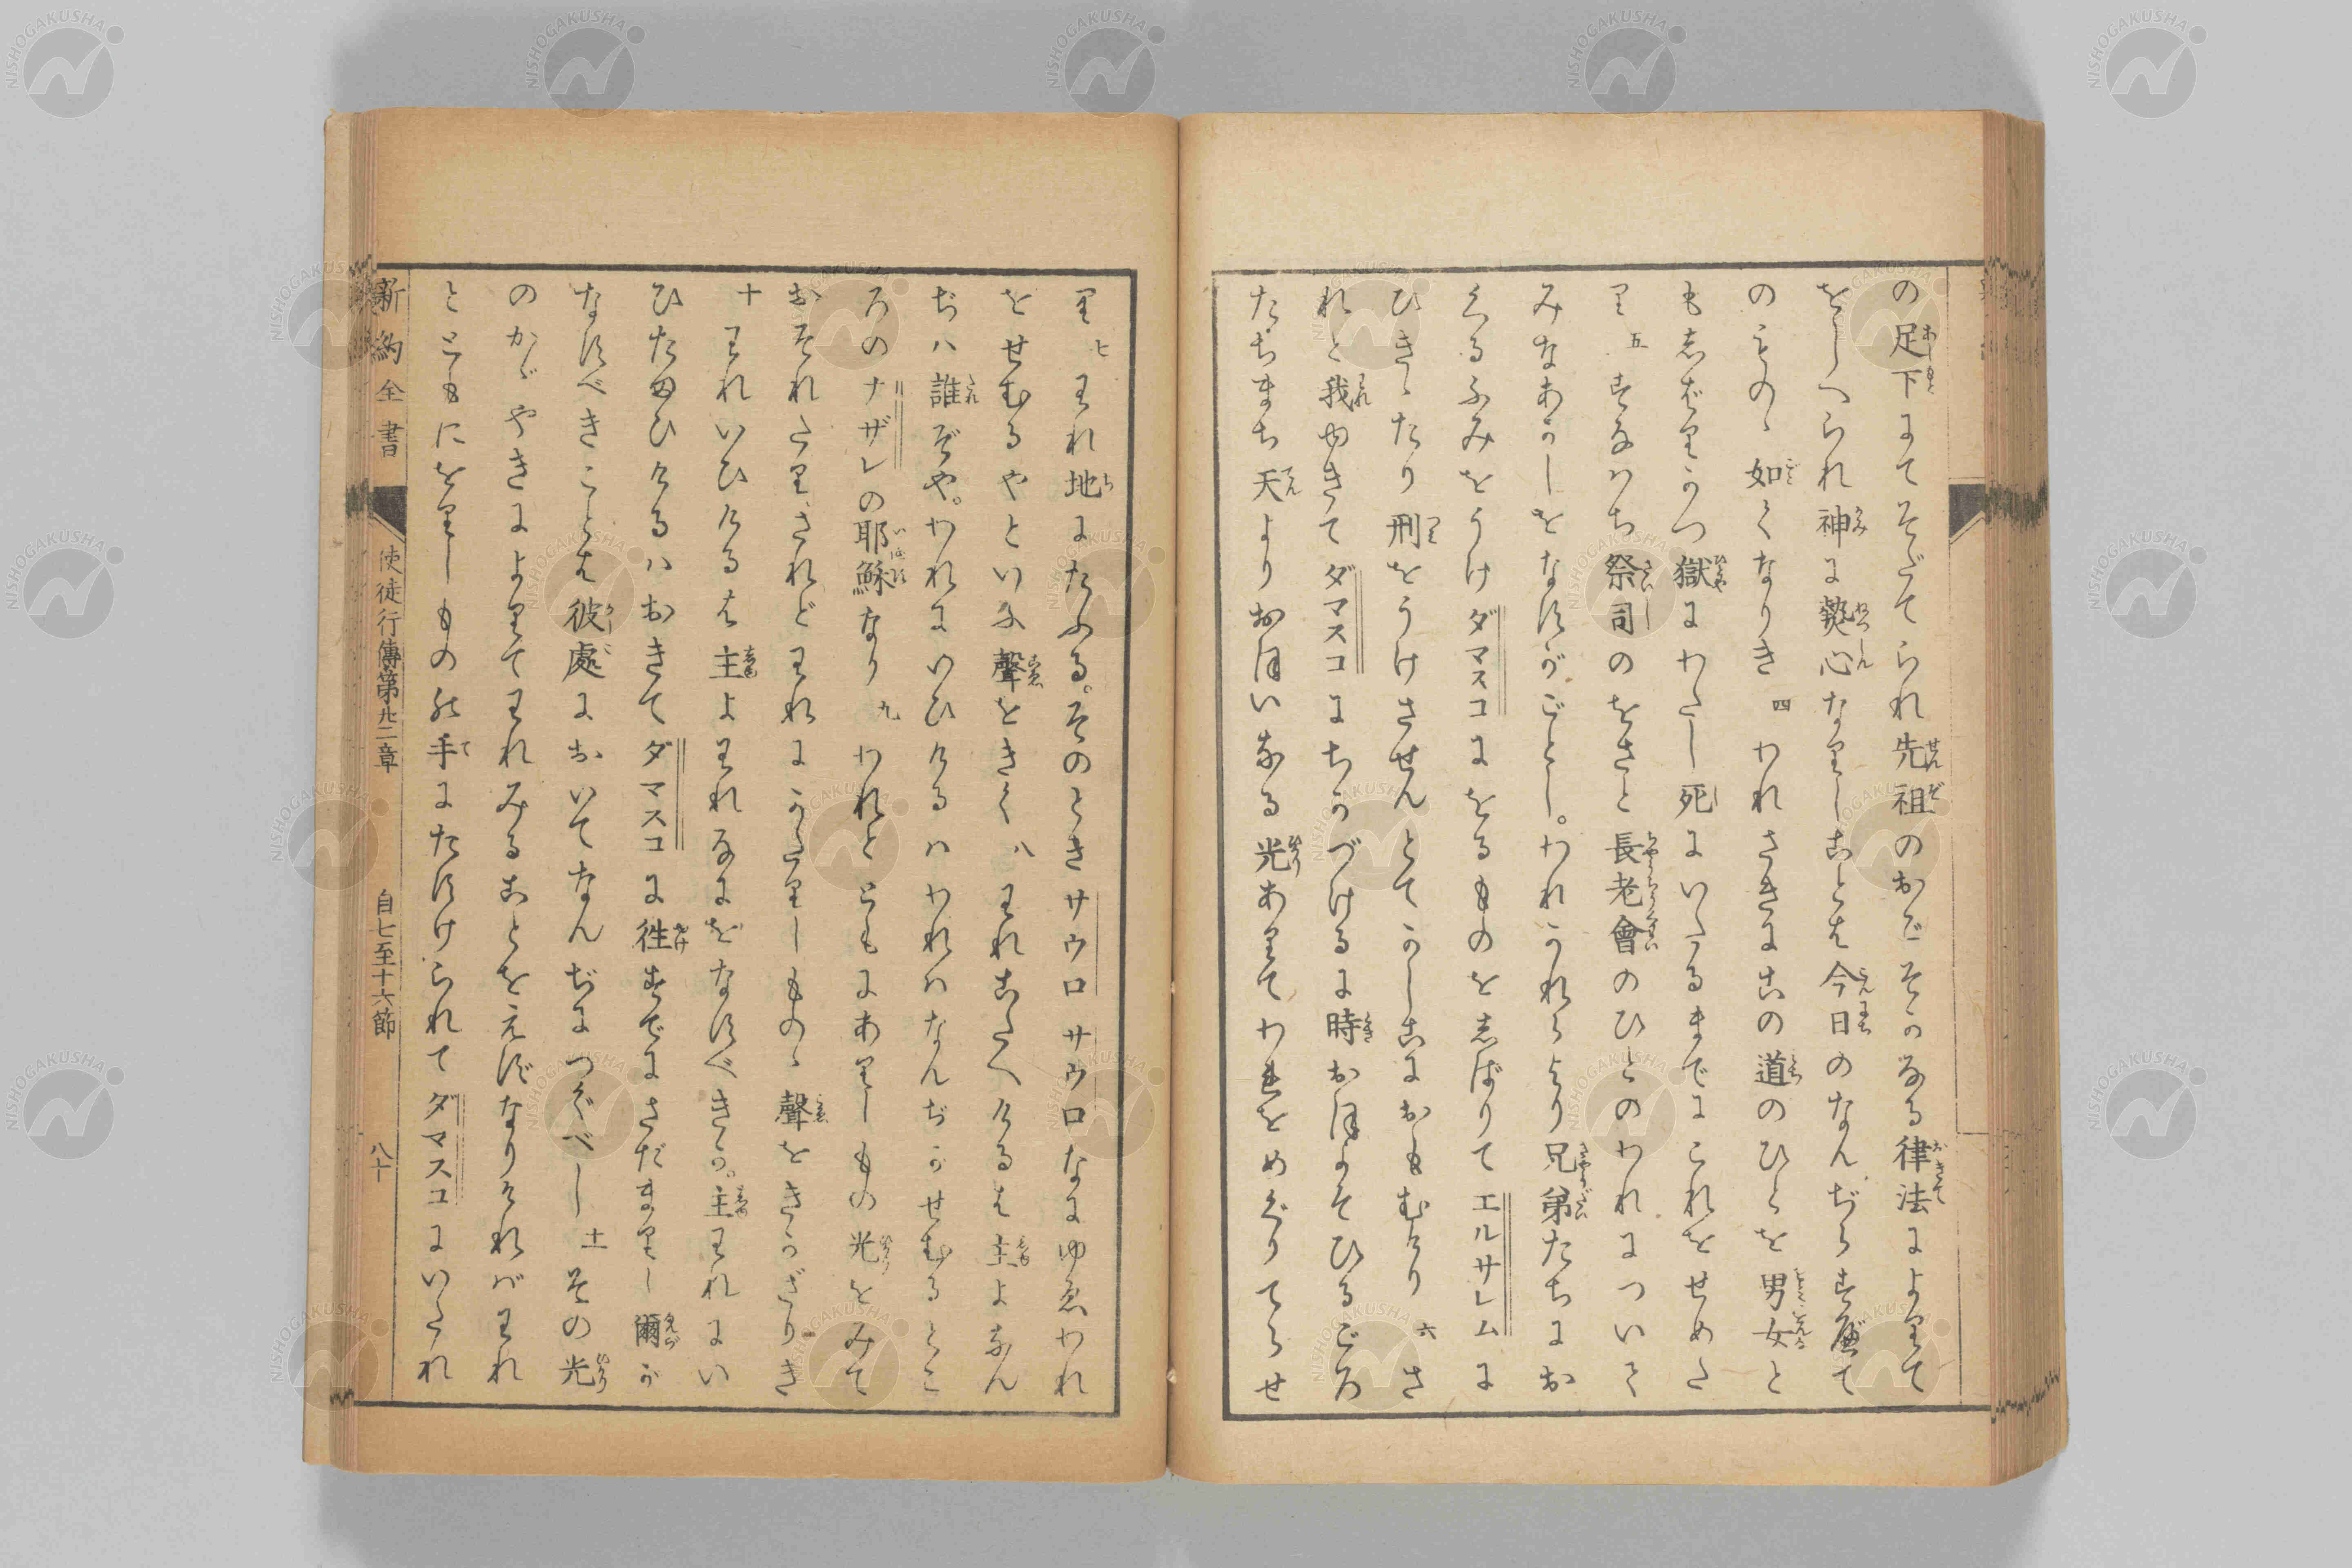 の足下にてそだてられ先祖のおごそかなる律法によりて
をしへられ神に熱心なりしことは今日のなんぢらすべて
のものゝ如くなりき 四 われさきにこの道のひとを男女と
もしばりかつ獄にわたし死にいたるまでにこれをせめた
り 五 すなはち祭司のをさと長老會のひとのわれについて
みなあかしをなすがごとし。われかれらより兄弟たちにお
くるふみをうけダマスコにをるものをしばりてエルサレムに
ひきゝたり刑をうけさせんとてかしこにおもむけり 六 さ
れど我ゆきてダマスコにちかづけるに時おほよそひるごろ
たちまち天よりおほいなる光ありてわれをめぐりてらせ
り 七 われ地にたふる。そのときサウロサウロなにゆゑわれ
をせむるやといふ聲をきく 八 われこたへけるは主よなん
ぢハ誰ぞや。われにいひけるハわれハなんぢがせむるとこ
ろのナザレの耶穌なり 九 われとともにありしもの光をみて
おそれたりされどわれにかたりしものゝ聲をきかざりき
十 われいひけるは主よわれなにをなすべきか。主われにい
ひたまひけるハおきてダマスコに徃すでにさだまりし爾が
なすべきことは彼處においてなんぢにつぐべし 十一 その光
のかゞやきによりてわれみることをえずなりければわれ
とともにをりしものの手にたすけられてダマスコにいたれ
新約全書 使徒行傳第廿二章 自七至十六節 八十
NISHOGAKUSHA